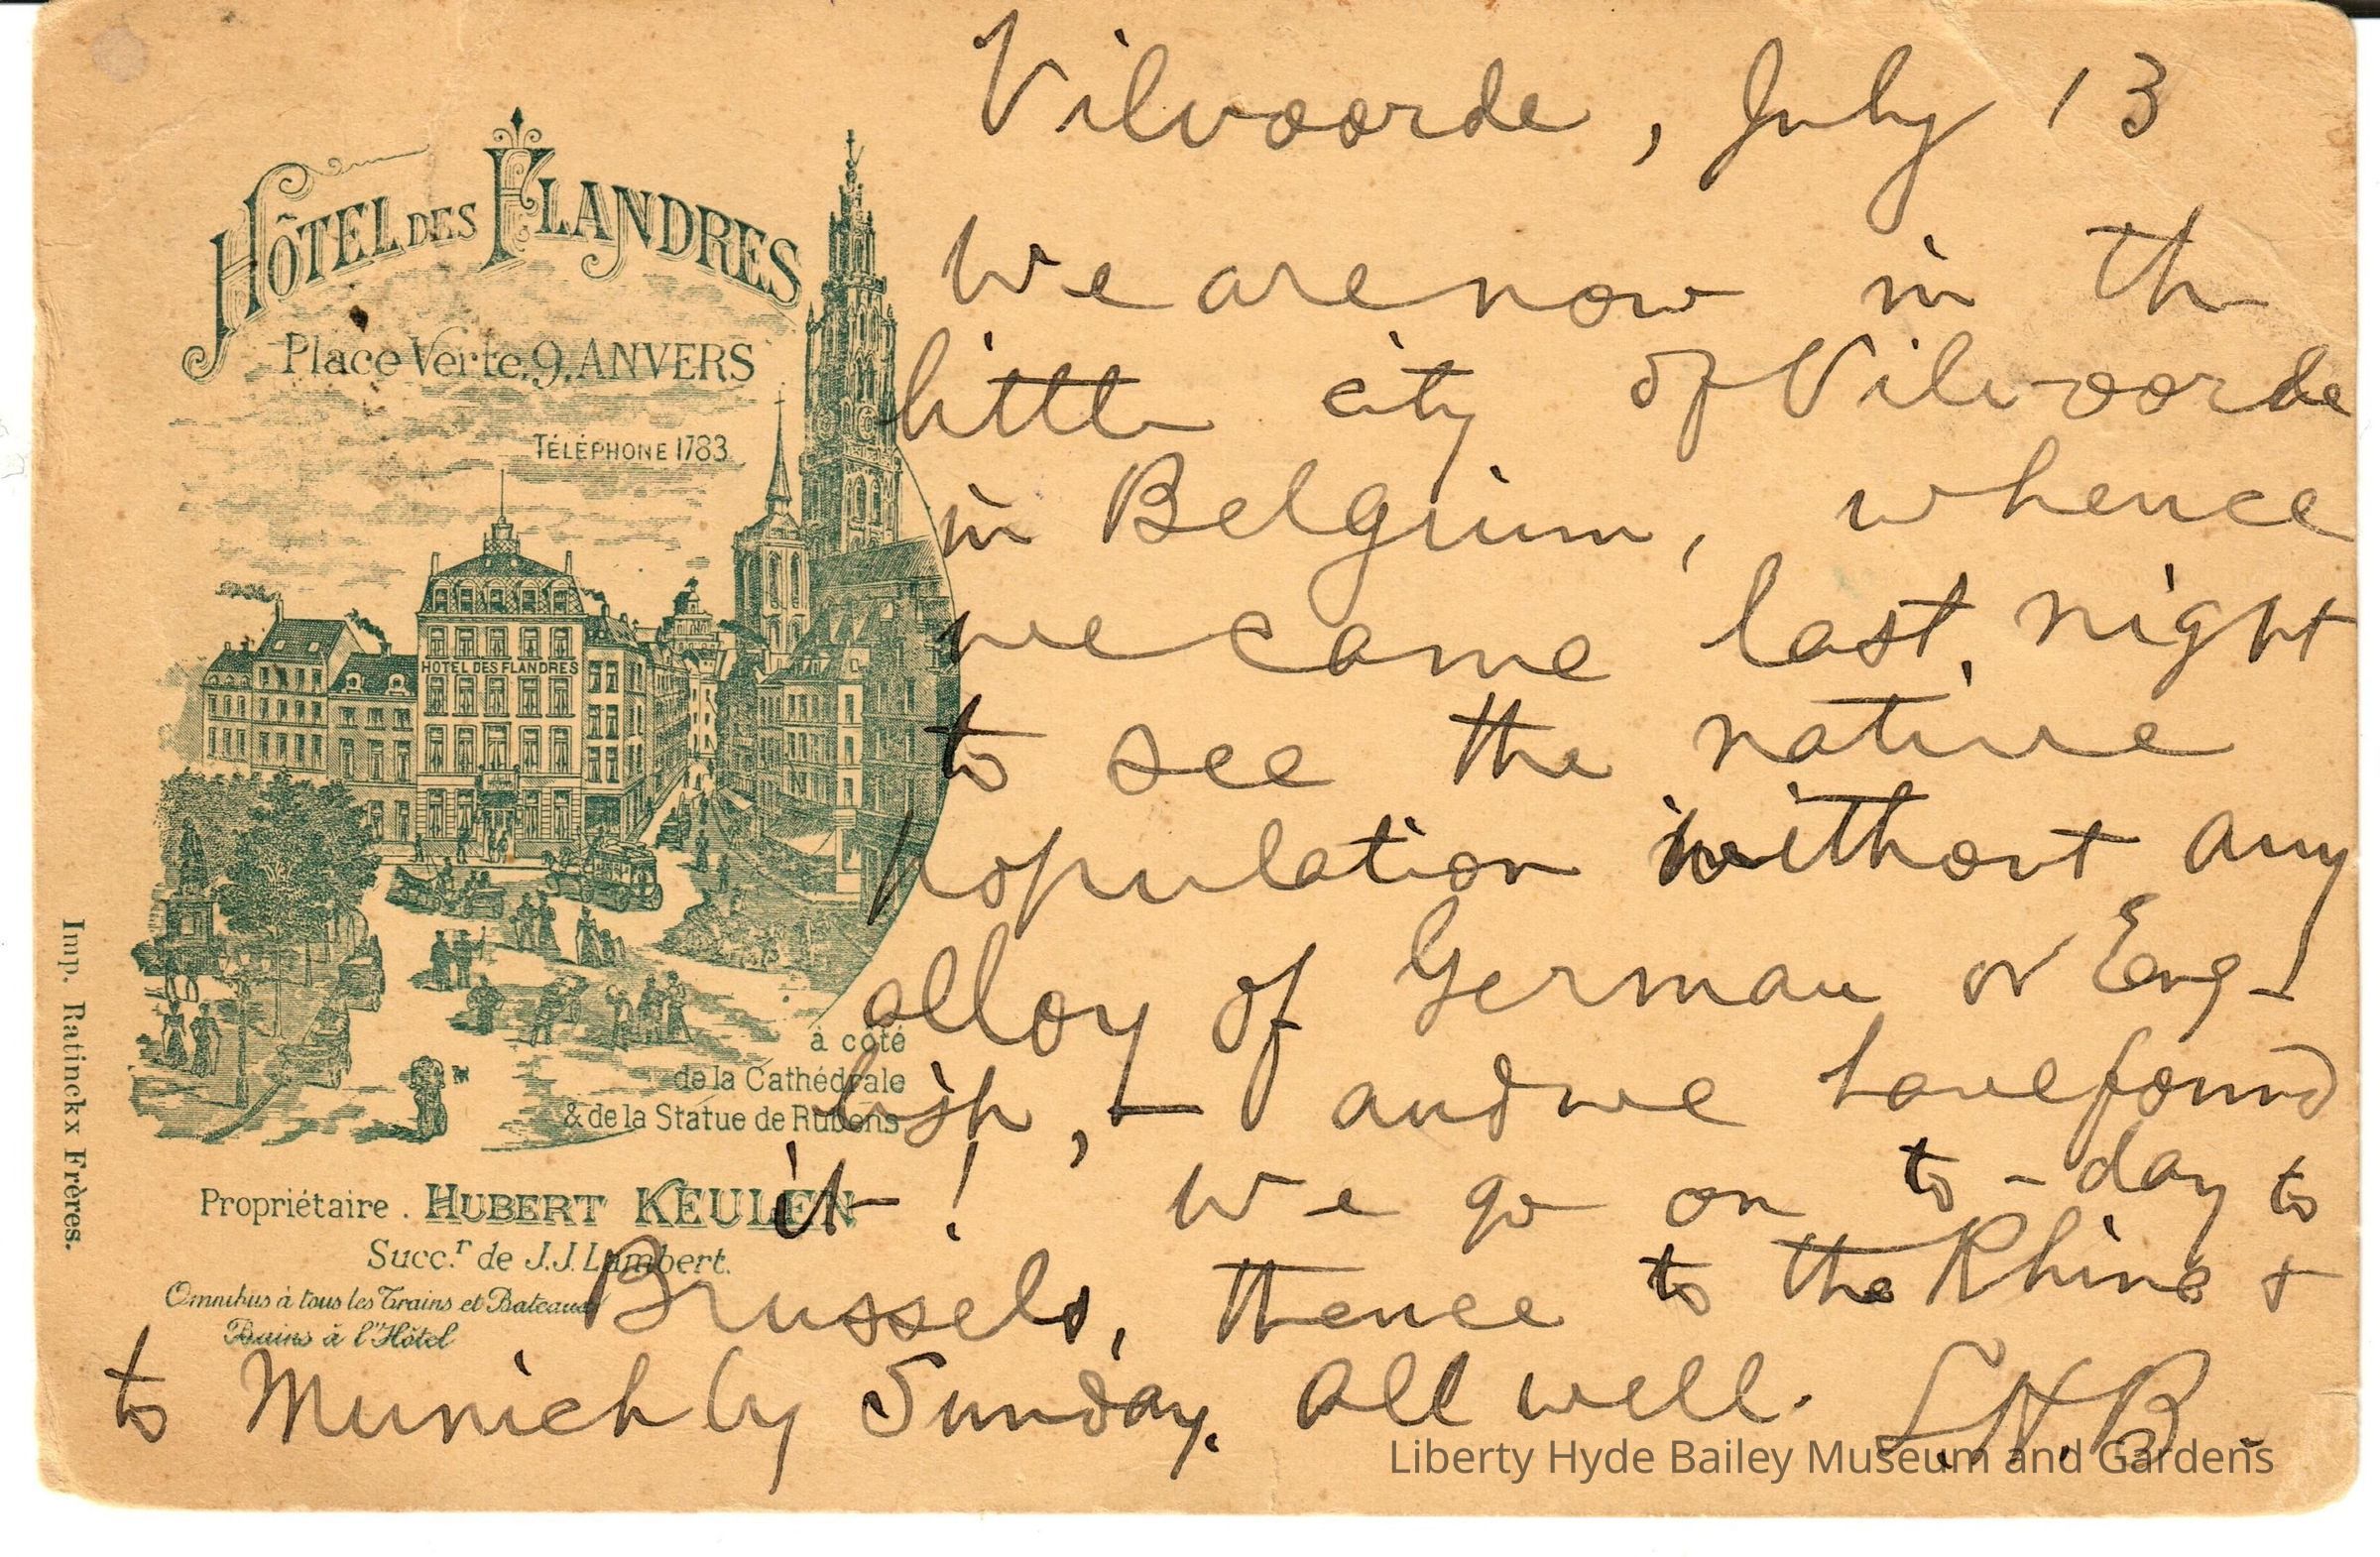 HÔTEL DES FLANDRES
Place Verte, 9, ANVERS
TÉLÉPHONE 1783
HOTEL DES FLANDRES
à côté
de la Cathédrale
& de la Statue de Rubens.
Propriétaire . HUBERT KEULEN
Succ.r de J.J. Lambert.
Omnibus à tous les Trains et Bateaux
Bains à l'Hôtel
Imp. Ratinckx Frères.
Vilvoorde, July 13
We are now in the
little city of Vilvoorde
in Belgium, whence
we came last night
to see the native
population without any
alloy of German or Eng-
lish, — and we have found
it! We go on to-day to
Brussels, thence to the Rhine &
to Munich by Sunday. All well. L.H.B.
Liberty Hyde Bailey Museum and Gardens